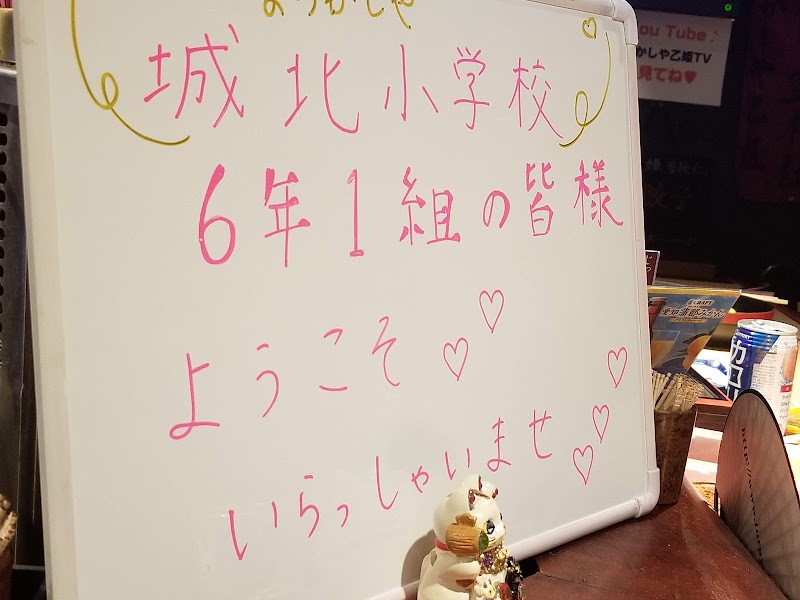 ようかしや
城北小学校
6年1組の皆様
ようこそ
いらっしゃいませ
ou Tube
かしや乙姫TV
見てね♥
カロリ